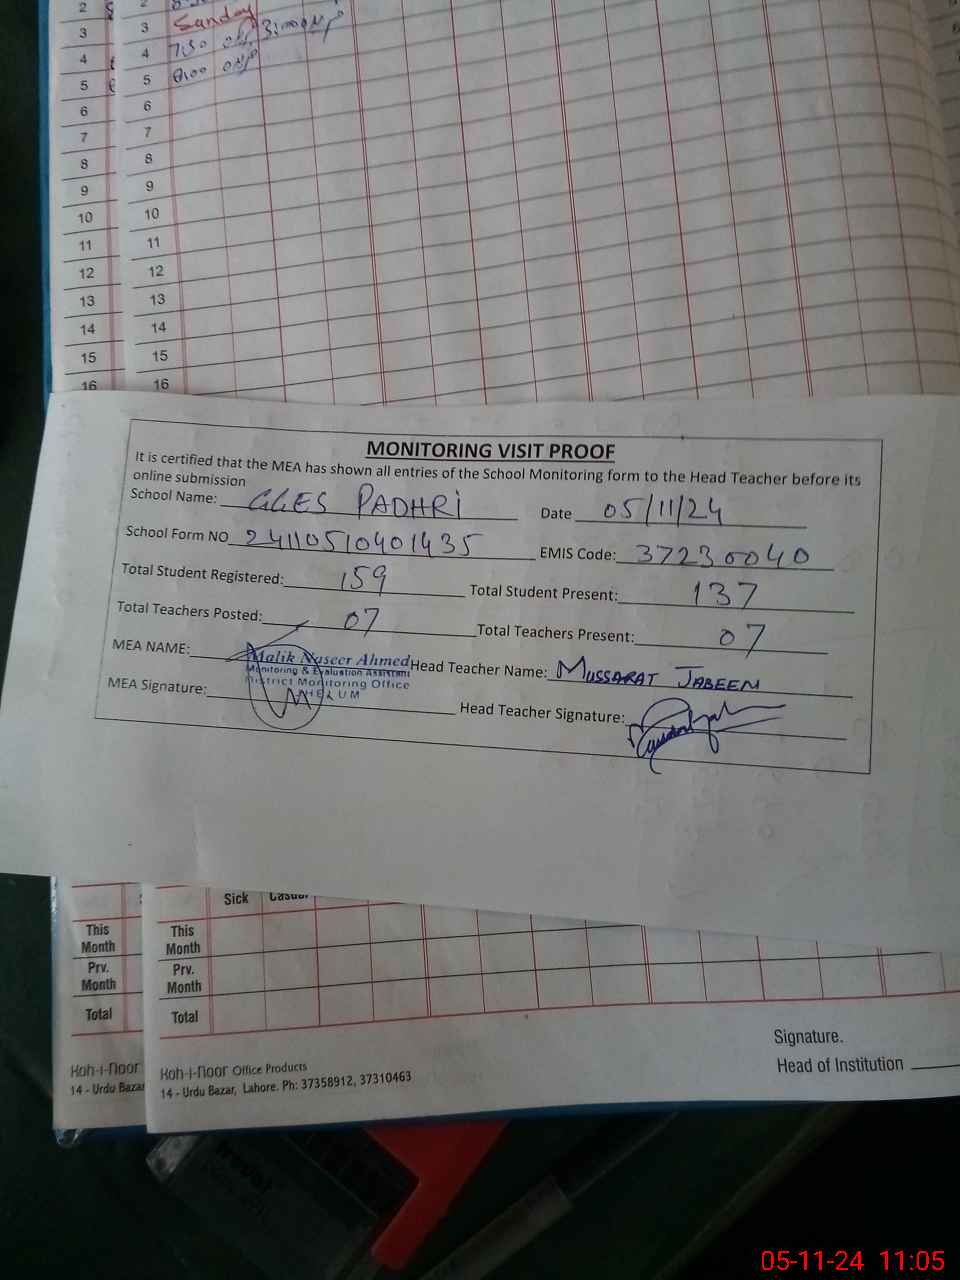 2 2
3 3 Sanday
4 4 7:30
5 5 8:00
6 6
7 7
8 8
9 9
10 10
11 11
12 12
13 13
14 14
15 15
16 16
MONITORING VISIT PROOF
It is certified that the MEA has shown all entries of the School Monitoring form to the Head Teacher before its
online submission
School Name: GGES PADHRI Date 05/11/24
School Form NO 24110510401435 EMIS Code: 37230040
Total Student Registered: 159 Total Student Present: 137
Total Teachers Posted: 07 Total Teachers Present: 07
MEA NAME: Malik Naseer Ahmed Head Teacher Name: MUSSARAT JABEEN
Monitoring & Evaluation Assistant
District Monitoring Office
JHELUM
MEA Signature: Head Teacher Signature:
Sick Casual
This Month This Month
Prv. Month Prv. Month
Total Total
Signature.
Head of Institution
Koh-i-Noor Koh-i-Noor Office Products
14 - Urdu Bazar 14 - Urdu Bazar, Lahore. Ph: 37358912, 37310463
05-11-24 11:05